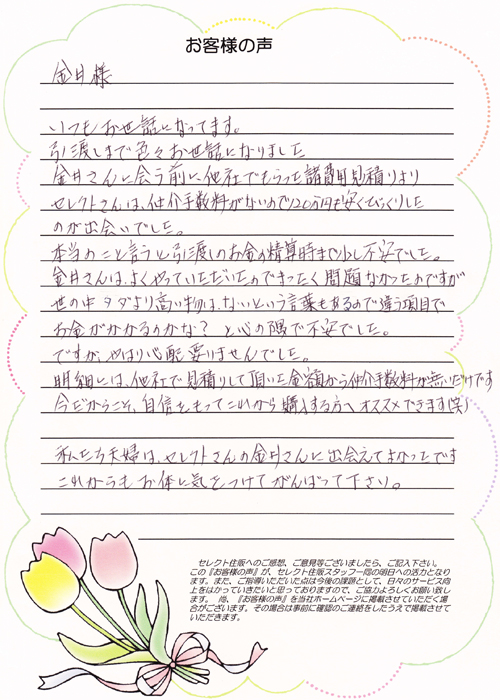 お客様の声
金井様
いつもお世話になってます。
引渡しまで色々お世話になりました
金井さんに会う前に他社でもらった諸費用見積りより
セレクトさんは、仲介手数料がないので120万円も安くてびっくりした
のが出会いでした。
本当のこと言うと引渡しのお金の精算時まで少し不安でした。
金井さんは、よくやっていただいたのでまったく問題なかったのですが
世の中タダより高い物は、ないという言葉もあるので違う項目で
お金がかかるのかな？と心の隅で不安でした。
ですが、やはり心配要りませんでした。
明細には、他社で見積りして頂いた金額から仲介手数料が無いだけです
今だからこそ、自信をもってこれから購入する方へオススメできます(笑)
私たち夫婦は、セレクトさんの金井さんに出会えてよかったです
これからもお体に気をつけてがんばって下さい。
セレクト住販へのご感想、ご意見等ございましたら、ご記入下さい。
この『お客様の声』が、セレクト住販スタッフ一同の明日への活力となり
ます。また、ご指導いただいた点は今後の課題として、日々のサービス向
上をはかっていきたいと思っておりますので、ご協力よろしくお願い致し
ます。 尚、『お客様の声』を当社ホームページに掲載させていただく場
合がございます。その場合は事前に確認のご連絡をしたうえで掲載させて
いただきます。